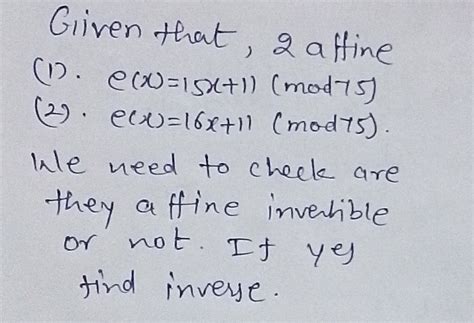 Giiven that, 2 affine
(1). e(x)=15x+11 (mod 75)
(2). e(x)=16x+11 (mod 75).
We need to check are
they affine invertible
or not. If yes
find inverse.